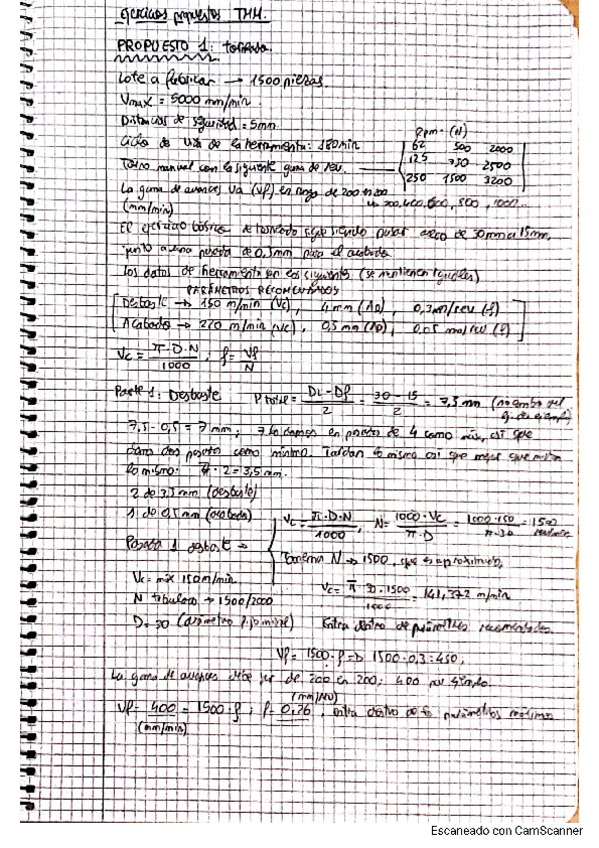 ejercicios propuestos THM.
PROPUESTO 1: torneado.
Lote a fabricar → 1500 piezas.
Vmax = 5000 mm/min.
Distancias de seguridad = 5mm
Ciclo de vida de la herramienta: 180min
Torno manual con la siguiente gama de rev. →
Rpm (N)
62 500 2000
125 750 2500
250 1500 3200
La gama de avances va (Vf) en rango de 200 en 200
(mm/min) 200, 400, 600, 800, 1000...
El ejercicio básico de torneado sigue siendo pasar de 30mm a 15mm,
junto a una pasada de 0,5mm para el acabado
Los datos de herramienta son los siguientes (se mantienen iguales)
PARÁMETROS RECOMENDADOS
Desbaste → 150 m/min (Vc), 4mm (AP), 0,3mm/rev (f)
Acabado → 220 m/min (Vc), 0,5mm (AP), 0,05 mm/rev (f)
Vc = π·D·N / 1000 ; f = Vf / N
Parte 1: Desbaste P total = Di - Df / 2 = 30 - 15 / 2 = 7,5 mm
7,5 - 0,5 = 7 mm; 7 lo damos en pasadas de 4 como máx, así que
damos dos pasadas como mínimo. Tardan lo mismo así que mejor que
lo mismo: 7 : 2 = 3,5 mm.
2 de 3,5 mm (desbaste)
1 de 0,5 mm (acabado)
Vc = π·D·N / 1000, N = 1000·Vc / π·D = 1000·150 / π·30 = 1500
Pasada 1 desbaste →
Tomamos N → 1500, que es aproximado,
Vc = máx 150 m/min
Vc = π·30·1500 / 1000 = 141,372 m/min
N tabulado → 1500/2000
D = 30 Entra dentro de parámetros recomendados.
Vf = 1500·f => 1500·0,3 = 450;
La gama de avances debe ser de 200 en 200; 400 por ejemplo.
Vf = 400 = 1500·f; f = 0,26 ; entra dentro de los parámetros
(mm/min)